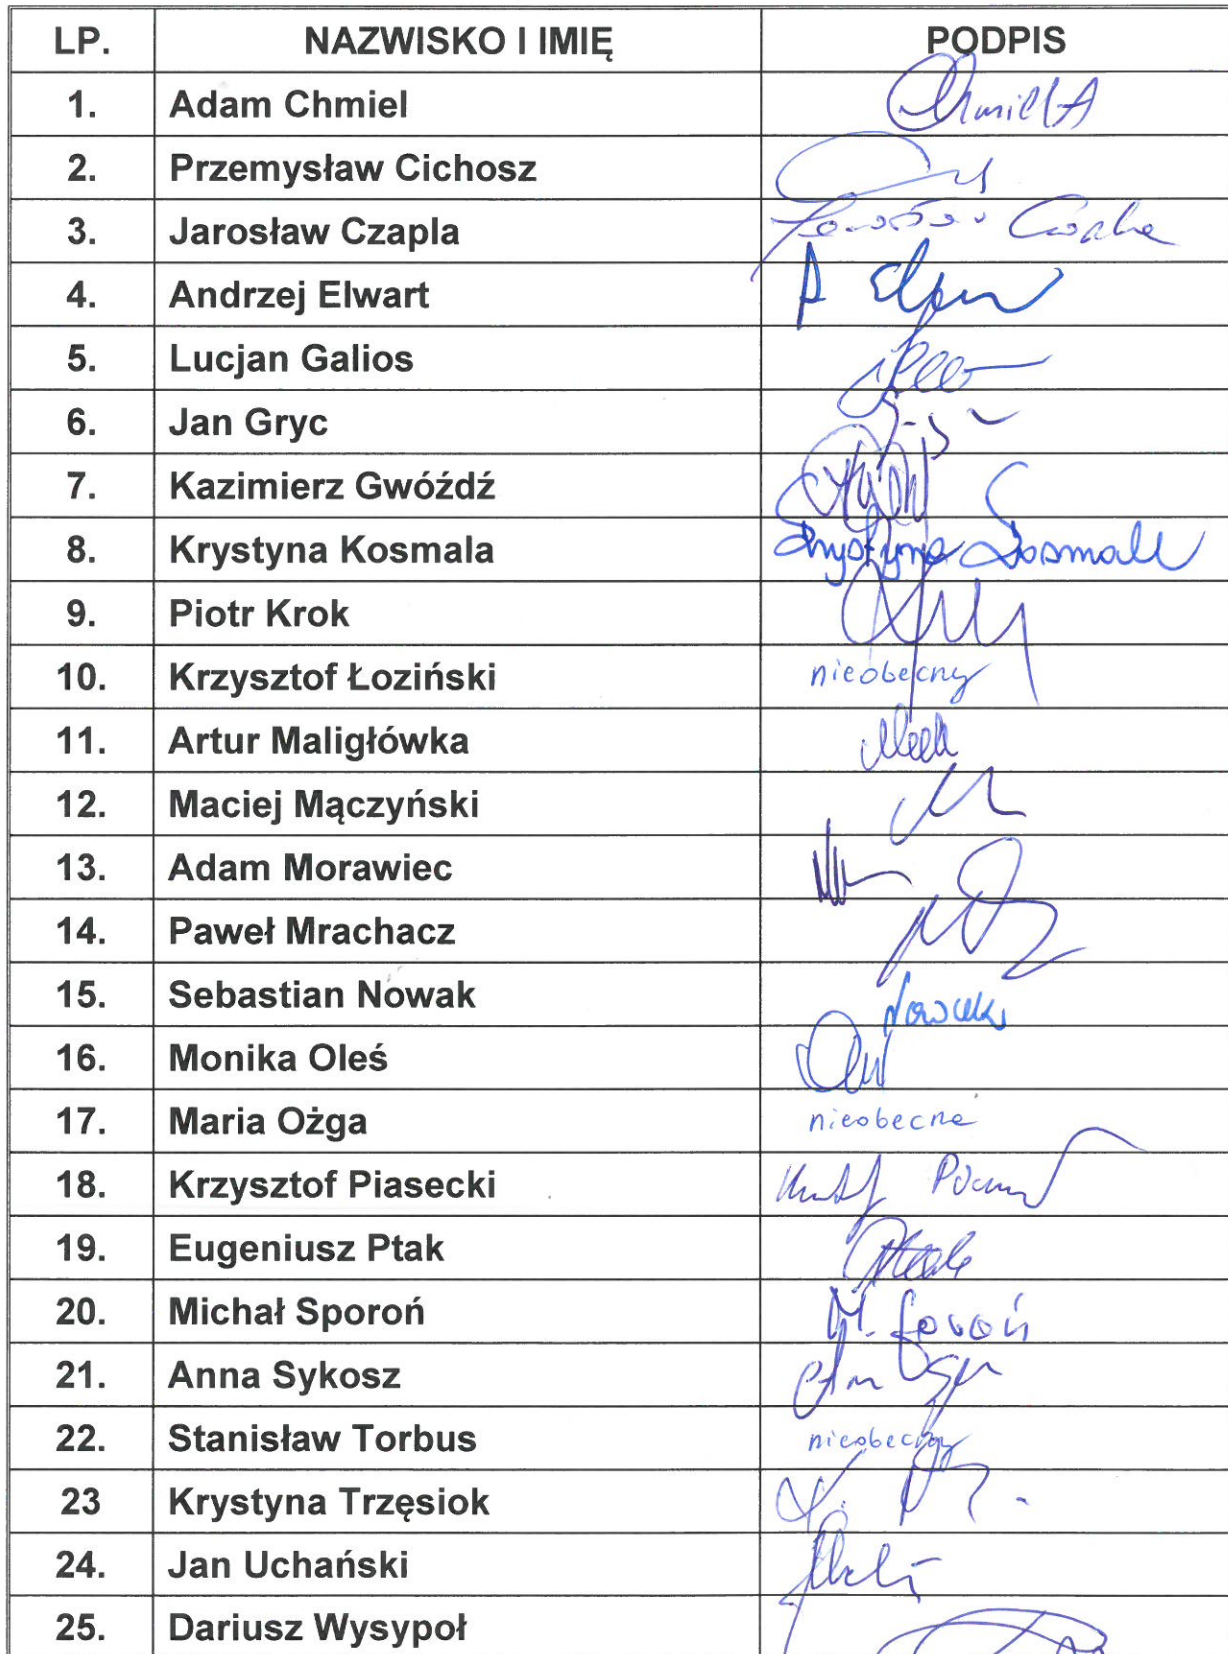 LP. NAZWISKO I IMIĘ PODPIS
1. Adam Chmiel Chmiel A
2. Przemysław Cichosz
3. Jarosław Czapla
4. Andrzej Elwart
5. Lucjan Galios
6. Jan Gryc
7. Kazimierz Gwóźdź
8. Krystyna Kosmala Krystyna Kosmala
9. Piotr Krok
10. Krzysztof Łoziński nieobecny
11. Artur Maligłówka
12. Maciej Mączyński
13. Adam Morawiec
14. Paweł Mrachacz
15. Sebastian Nowak Nowak
16. Monika Oleś
17. Maria Ożga nieobecna
18. Krzysztof Piasecki
19. Eugeniusz Ptak
20. Michał Sporoń M. Sporoń
21. Anna Sykosz
22. Stanisław Torbus nieobecny
23 Krystyna Trzęsiok
24. Jan Uchański
25. Dariusz Wysypoł